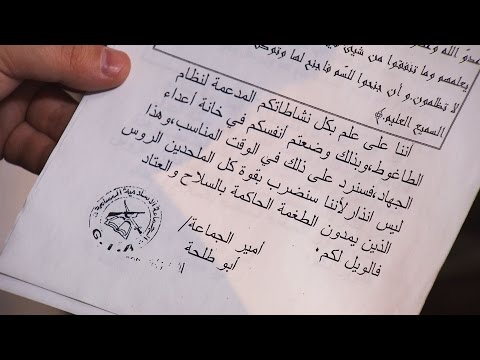 يعلمهم وما تنفقوا من شيئ
لا تظلمون.و أن جنحوا للسّم فاجنح لها وتوكل
السميع العليم.
أننا على علم بكل نشاطاتكم المدعمة لنظام
الطاغوط،وبذلك وضعتم أنفسكم في خانة أعداء
الجهاد،فسنرد على ذلك في الوقت المناسب،وهذا
ليس انذار لأننا سنضرب بقوة كل الملحدين الروس
الذين يمدون الطغمة الحاكمة بالسلاح والعتاد
فالويل لكم.
امير الجماعة/
أبو طلحة
الجماعة الاسلامية المسلحة
G.I.A